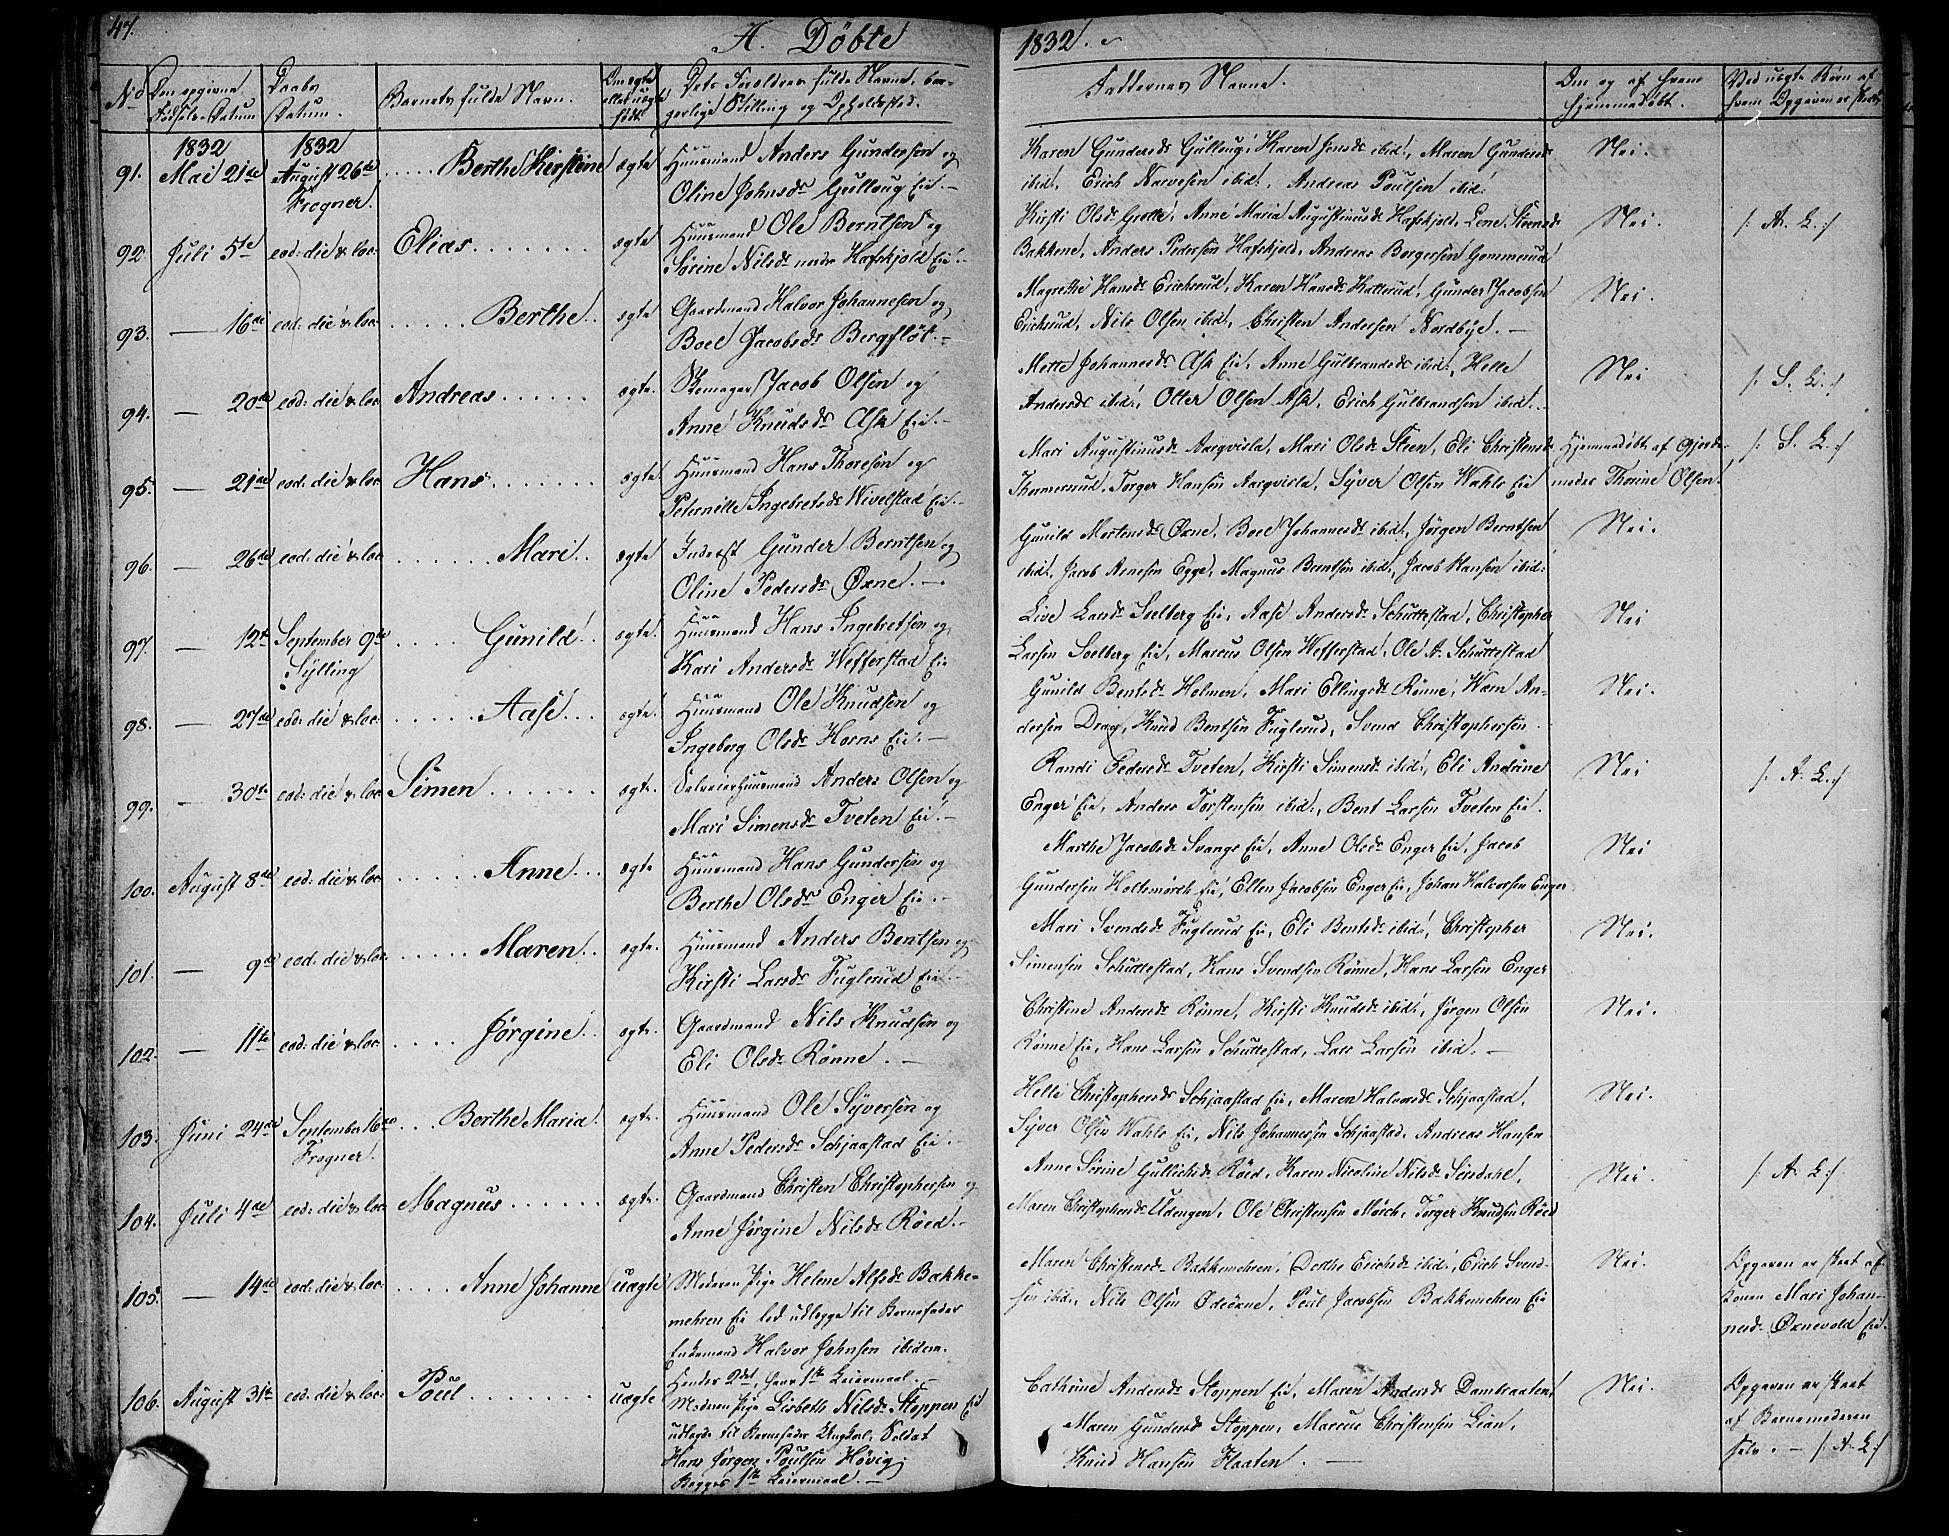 47.
A. Döbte
1832.
No
Den opgivne
Fødsels-Datum
Daabs
Datum.
Barnets fulde Navn.
Om ægte
eller uægte
født
Dets Forældres fulde Navne, bor-
gerlige Stilling og Opholdssted.
Faddernes Navne.
Om og af hvem
hjemmedöbt.
Ved uægte Börn af
hvem Opgaven er skeet
1832
1832
91. Mai 21de August 26de ..... Berthe Kirstine ægte Huusmand Anders Gundersen og
Frogner. Oline Johnsdr Gulloug Eie.-
Karen Gundersdr Gulloug, Karen Jensdr ibid:, Maren Gundersdr Nei.
ibid:, Erich Narvesen ibid:, Andreas Poulsen ibid:
92. Juli 5te eod: die & loc: Elias ....... ægte Huusmand Ole Berntsen og
Sörine Nilsdr nedre Hafskjold Eie.-
Kirsti Olsdr Grette, Anne Maria Augustinusdr Hafskjold, Lene Steensdr Nei. /: A. L. :/
Bakkene, Anders Pedersen Hafskjold, Andreas Borgersen Gommerud
93. — 16de eod: die & loc: ..... Berthe.. ægte Gaardmand Halvor Johannesen og
Boel Jacobsdr Bergflöt.-
Magrethe Hansdr Erichsrud, Karen Hansdr Katterud, Gunder Jacobsen Nei.
Erichsrud, Nils Olsen ibid:, Christen Andersen Nordbye.—
94. — 20de eod: die & loc: Andreas ...... ægte. Skomager Jacob Olsen og
Anne Knudsdr Ask Eie.-
Mette Johannesdr Ask Eie, Anne Gulbrandsdr ibid:, Helle Nei /: S. L. :/
Andersdr ibid:, Otter Olsen Ask, Erich Gulbrandsen ibid:.-
95. — 21de eod: die & loc: Hans ....... ægte. Huusmand Hans Thoresen og
Peternille Ingebretsdr Wivelstad Eie.-
Mari Augustinusdr Aarqvisla, Mari Olsdr Steen, Eli Christensdr Hjemmedöbt af Gjorde- /: S. L. :/
Thommesrud, Torger Hansen Aarqvisla, Syver Olsen Wahls Eie moder Thorine Olsen.
96. — 26de eod: die & loc: ...... Mari.. ægte Inderst Gunder Berntsen og
Oline Pedersdr Oxne.—
Gunild Mortensdr Oxne, Boel Johannesdr ibid:, Jörgen Berntsen Nei.
ibid:, Jacob Arnesen Egge, Magnus Berntsen ibid:, Jacob Hansen ibid:
97. — 12te September 9de .... Gunild.. ægte. Huusmand Hans Ingebretsen og
Sylling Kari Andersdr Wefferstad Eie
Live Larsdr Solberg Eie, Aase Andersdr Schuttestad, Christopher Nei
Larsen Solberg Eie, Marcus Olsen Wefferstad, Ole A. Schuttestad
98. — 27de eod: die & loc: ...... Aase... ægte. Huusmand Ole Knudsen og
Ingeborg Olsdr Horns Eie.—
Gunild Bentsdr Holmen, Mari Ellingsdr Rönne, Warn An- Nei.
dersen Drag, Knud Bentsen Fuglerud, Svend Christophersen
99. — 30te eod: die & loc: Simen ...... ægte. Selveierhuusmand Anders Olsen og
Mari Simensdr Tveten Eie.-
Randi Pedersdr Tveten, Kirsti Simensdr ibid:, Eli Andrine Nei /: A. L. :/
Enger Eie, Anders Torstensen ibid:, Bent Larsen Tveten Eie.
100. August 8de eod: die & loc: ..... Anne... ægte Huusmand Hans Gundersen og
Berthe Olsdr Enger Eie.-
Marthe Jacobsdr Svangs Eie, Anne Olsdr Enger Eie, Jacob Nei
Gundersen Holtsmörch Eie, Ellen Jacobsen Enger Eie, Johan Halvorsen Enger
101. — 9de eod: die & loc: ..... Maren.. ægte. Huusmand Anders Bentsen og
Kirsti Larsdr Fuglerud Eie.-
Mari Svendsdr Fuglerud Eie, Eli Bentsdr ibid:, Christopher Nei.
Simensen Schuttestad, Hans Svendsen Rönne, Hans Larsen Enger
102. — 11te eod: die & loc: .... Jörgine.. ægte. Gaardmand Nils Knudsen og
Eli Olsdr Rönne.—
Christine Andersdr Rönne, Kirsti Knudsdr ibid:, Jörgen Olsen Nei.
Rönne Eie, Hans Larsen Schuttestad, Lars Larsen ibid.—
103. Juni 24de September 16de ... Berthe Maria. ægte. Huusmand Ole Syversen og
Frogner. Anne Pedersdr Schjaastad Eie.-
Helle Christophersdr Schjaastad Eie, Maren Halvorsdr Schjaastad, Nei.
Syver Olsen Wahls Eie, Nils Johannesen Schjaastad, Andreas Hansen
104. Juli 4de eod: die & loc: Magnus ...... ægte. Gaardmand Christen Christophersen og
Anne Jörgine Nilsdr Röed.-
Anne Sörine Gullichsdr Röed, Karen Nicoline Nilsdr Sörsdahl, Nei. /: A. L. :/
Maren Christophersdr Udengen, Ole Christensen Mörch, Torger Knudsen Röed
105. — 14de eod: die & loc: .... Anne Johanne uægte Moderen Pige Helene Alfsdr Bakke-
mehren Eie lod udlægge til Barnefader
Enkemand Halvor Johnsen ibidem.
Hendes 2det, hans 1te Leiermaal.—
Maren Christensdr Bakkemehren, Dorthe Erichsdr ibid:, Erich Svend- Nei. Opgaven er skeet af
sen ibid:, Nils Olsen Ödeörne, Poul Jacobsen Bakkemehren Eie Konen Mari Johan-
nesdr Oxnevold Eie.
106. August 31te eod: die & loc: Poul ....... uægte Moderen Pige Lisbeth Nilsdr Stoppen Eie
udlagde til Barnefader Ungkal, Soldat
Hans Jörgen Poulsen Hövig.
Begges 1te Leiermaal.—
Cathrine Andersdr Stoppen Eie, Maren Andersdr Dambraaten, Nei. Opgaven er skeet
Maren Gundersdr Stoppen, Marcus Christensen Lian, af Barnemoderen
Knud Hansen Haaten.— selv.— /: A. L. :/